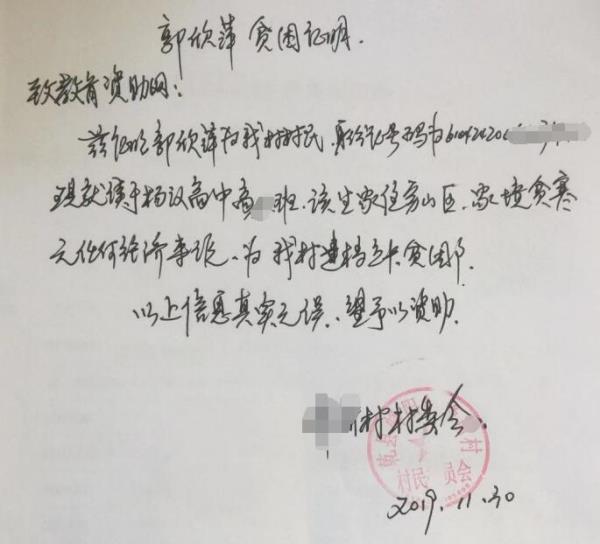 郭欣萍 贫困证明.
致教育资助网:
兹证明郭欣萍为我村村民,身份证号码为6104242
现就读于杨汉高中高 班.该生家住旁山区.家境贫寒
无任何经济来源.为我村建档立卡贫困户.
以上信息真实无误.望予以资助.
村村委会.
村民 员会
2019.11.30